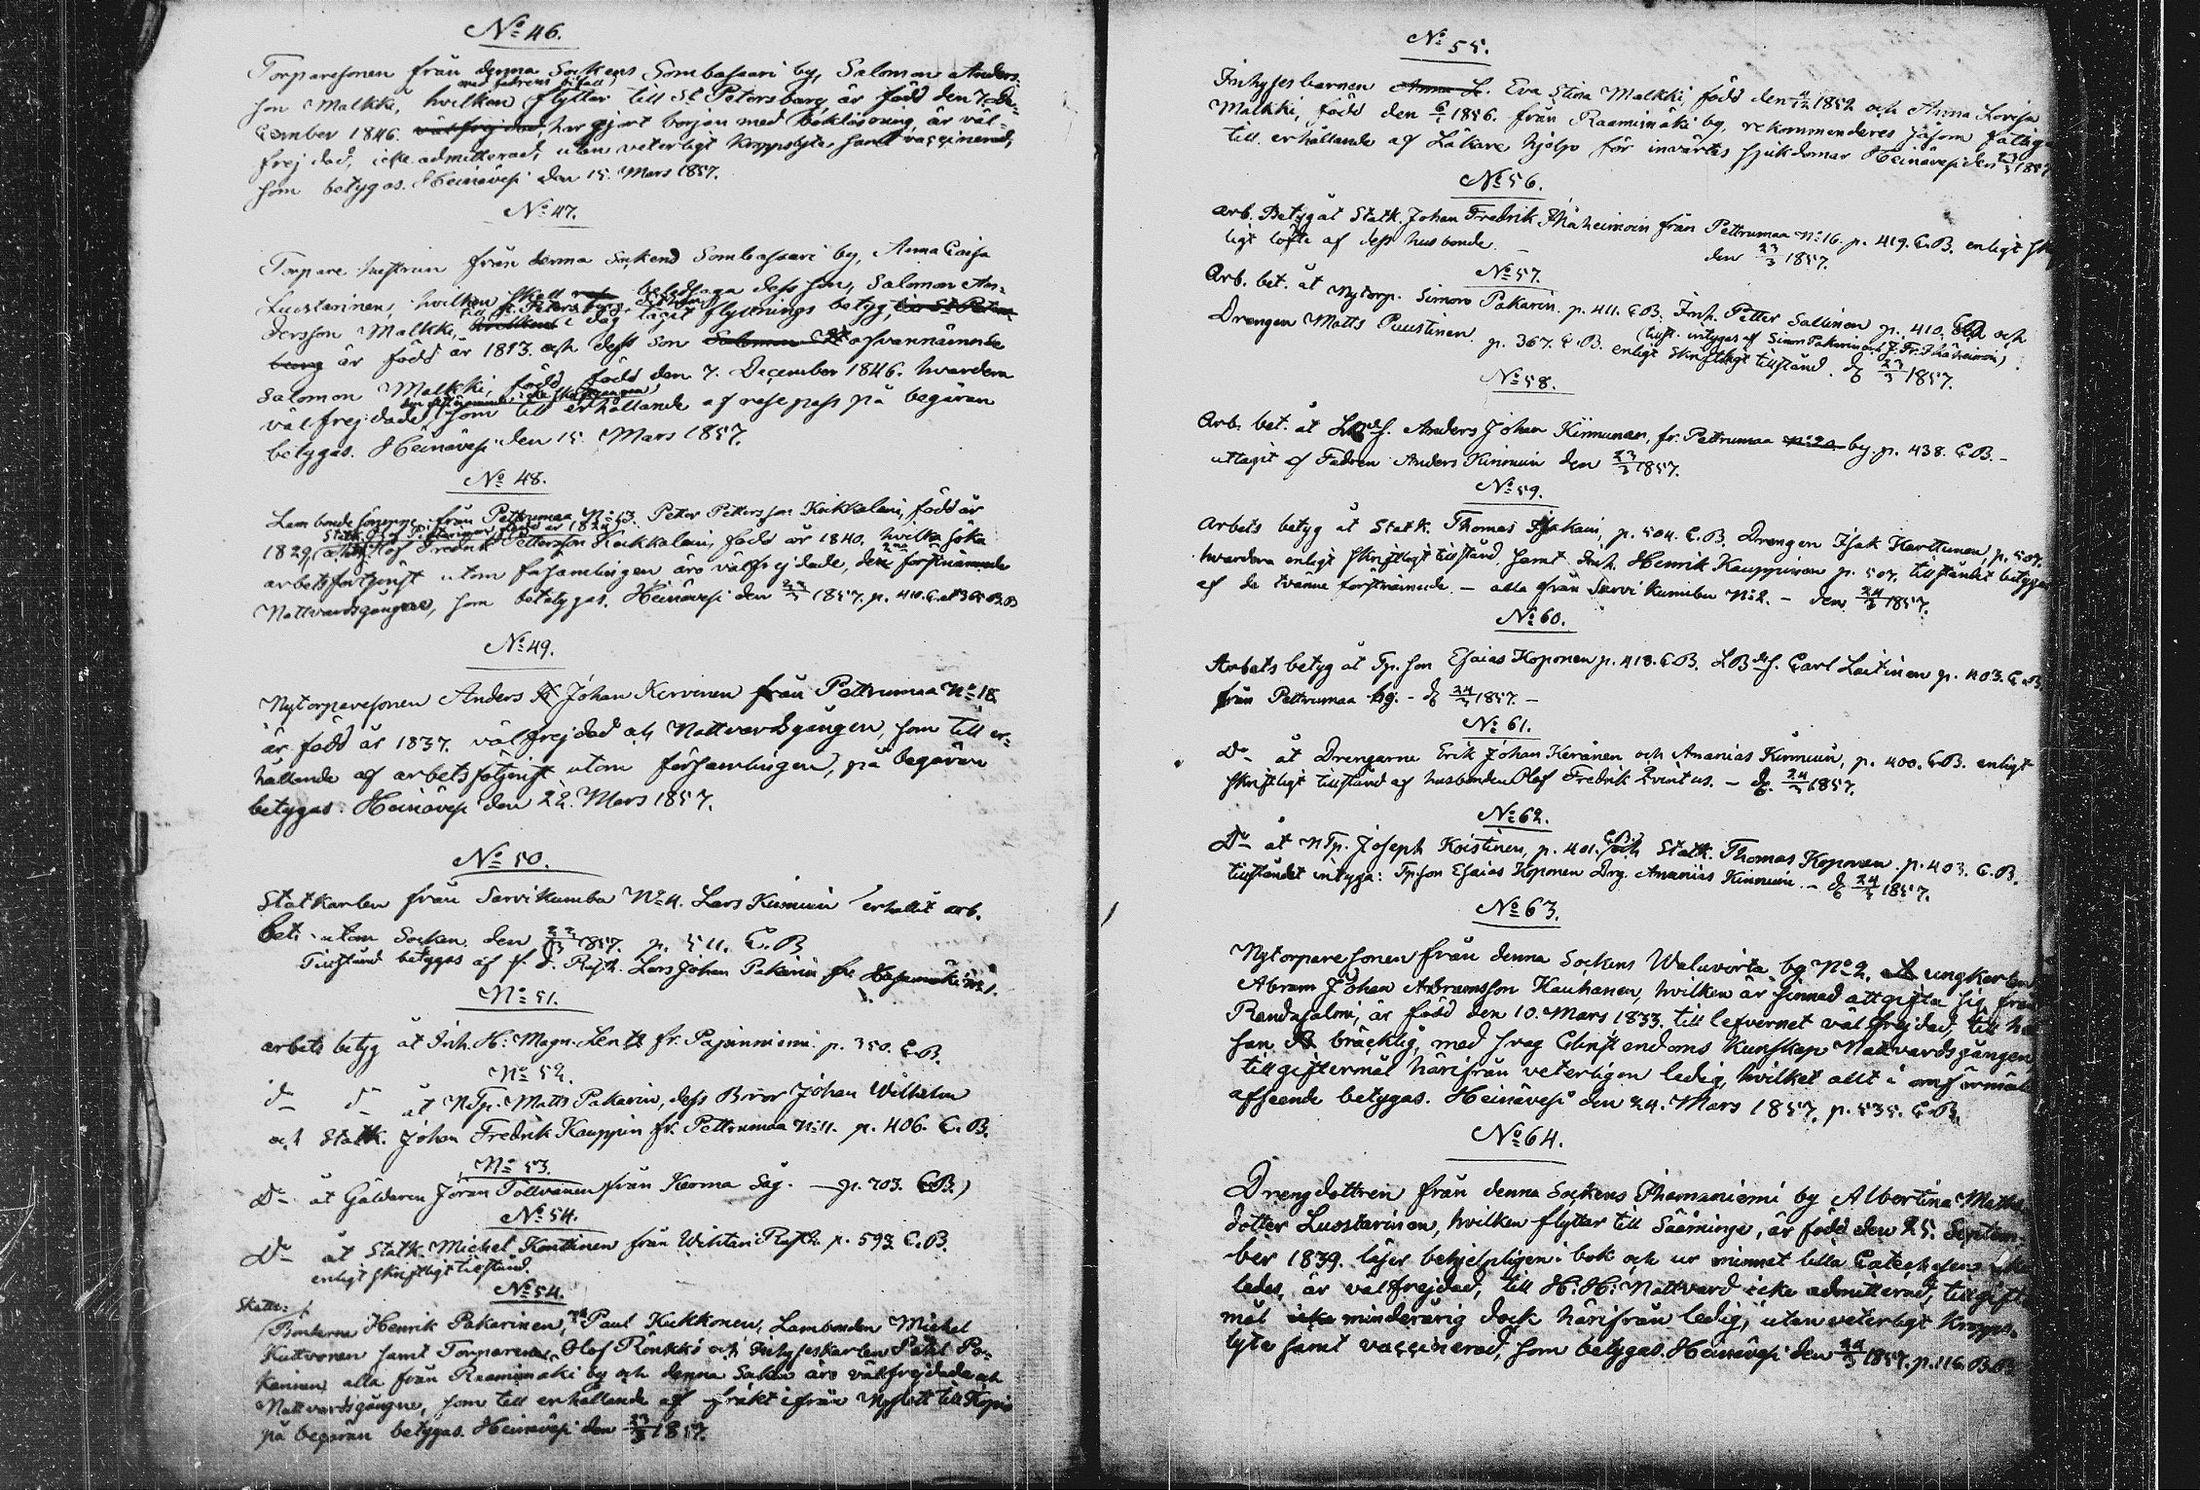 No 46.
Torparesonen från denna Sockens Sombasaari by, Salomon Anders-
med fadrens bifall
son Malkki, hvilken flyttar till St Petersburg är född den 7. De-
cember 1846. välfrejdad, har gjort början med bokläsning, är väl-
frejdad, icke admitterad, utan veterligt kroppslyte samt vaccinerad,
som betygas. Heinävesi den 15. Mars 1857.
No 47.
Torpare hustrun från denna Sockens Sombasaari by, Anna Caisa
Luostarinen, hvilken skall beledsaga dess son, Salomon An-
till St. Petersburg
dersson Malkki, i dag tagit flyttnings betyg,
är född år 1813. och dess son Salomon ofvannämnde
Salomon Malkki, född född den 7. December 1846. hvardera
välfrejdade, som till erhållande af respass på begäran
betygas. Heinävesi den 15. Mars 1857.
No 48.
Lambonde från Pettrumaa No 13. Petter Pettersson Kukkalain, född år
1829, Fredrik Pettersson Kukkalain, född år 1840, hvilka söka
arbetsförtjenst utom församlingen äro välfrejdade, den förstnämnde
Nattvardsgångare, som betygas. Heinävesi den 23/3 1857. p. 410. C.
No 49.
Nytorparesonen Anders Johan Kervinen från Pettrumaa No 18
är född år 1837. välfrejdad och Nattvardsgången, som till er-
hållande af arbetsförtjenst utom församlingen, på begäran
betygas. Heinävesi den 22. Mars 1857.
No 50.
Statkarlen från Sarvikumbu No 4. Lars Kinnuin erhållit arb.
bet. utom Socken den 22/3 1857. p. 511. C.B.
Tillstånd betygas af Lars Johan Pakarin fr.
No 51.
arbets betyg åt Inh. H: Magn. Lentz fr. Pajuniemi p. 350. C.B.
No 52.
do do åt NTp. Matts Pakarin, dess Bror Johan Wilhelm
och Statk. Johan Fredrik Kauppin fr. Pettrumaa No 11. p. 406. C.B.
No 53.
Do åt Gåldaren Jöran Tollvanen från Kerma Såg. — p. 703. C.B.
No 54.
Do åt Statk. Michel Konttinen från Wihtari p. 593 C.B.
enligt skriftligt tillstånd.
No 54.
Skatte:
Bönderna Henrik Pakarinen, Paul Kukkonen, Lambonden Michel
Kuttvonen samt Torparene Olof Rönkkö och Inhyseskarlen Påhl Pa-
karinen alla från Raamimäki by och denna Socken äro välfrejdade och
Nattvardsgångne, som till erhållande af frakt ifrån Nyslott till Kopio
på begäran betygas. Heinävesi den 23/3 1857.
No 55.
Inhysesbarnen Eva Stina Malkki, född den 1852 och Anna Lovisa
Malkki, född den 1856. från Raamimäki by, rekommenderes såsom fattiga
till erhållande af Läkare hjelp för invärtes sjukdomar Heinävesi den 23/3 1857
No 56.
Arb. Betyg åt Statk. Johan Fredrik Ihäheimoin från Pettrumaa No 16. p. 419. C.B. enligt
ligt löfte af dess husbonde. — den 23/3 1857.
No 57.
Arb. bet. åt Nytorp. Simon Pakarin. p. 411. C.B. Inh. Petter Sallinen p. 410. och
Drengen Matts Puustinen p. 367. C.B. enligt skriftligt tillstånd. d 23/3 1857.
(tillst. intygas af Simon Pakarin och J. Fr. Ihäheimoin)
No 58.
Arb. bet. åt Anders Johan Kinnunen, fr. Pettrumaa by. p. 438. C.B. —
uttagit af Fadren Anders Kinnuin den 23/3 1857.
No 59.
Arbets betyg åt Statk. Thomas p. 504. C.B. Drengen Isak Karttunen, p. 507.
hvardera enligt skriftligt tillstånd samt Inh. Henrik Kauppinen p. 507. tillståndet betygas
af de tvänne förstnämnde. — alla från Sarvikumbu No 2. — den 24/3 1857.
No 60.
Arbets betyg åt Tp. son Esaias Koponen p. 418. C.B. Carl Laitinen p. 403. C.B.
från Pettrumaa by. — d 24/3 1857. —
No 61.
Do åt Drengarne Erik Johan Keränen och Ananias Kinnuin, p. 400. C.B. enligt
skriftligt tillstånd af husbonden Olof Fredrik Qvintus. — d. 24/3 1857.
No 62.
Do åt NTp. Joseph Koistinen, p. 401. C.B. och Statk. Thomas Koponen p. 403. C.B.
tillståndet intyga: Tp.son Esaias Koponen Drg. Ananias Kinnuin. — d 24/3 1857.
No 63.
Nytorparesonen från denna Sockens Waluvirta by No 2. ungkarlen
Abram Johan Abramsson Kauhanen, hvilken är sinnad att gifta sig från
Randasalmi, är född den 10. Mars 1833. till lefvernet välfrejdad, till
san bräcklig, med svag Christendoms kunskap Nattvardsgången,
till giftermål härifrån veterligen ledig, hvilket allt i
afseende betygas. Heinävesi den 24. Mars 1857. p. 535. C.B.
No 64.
Drengdottren från denna Sockens Ihamaniemi by Albertina Matts-
dotter Luostarinen, hvilken flyttar till Sääminge, är född den 25. Septem-
ber 1839. läser behjelpligen i bok och ur minnet lilla Catechesens
ledes, är välfrejdad, till H. H. Nattvard icke admitterad, till gifter
mål icke minderårig dock härifrån ledig, utan veterligt kropps-
lyte samt vaccinerad, som betygas. Heinävesi den 24/3 1857. p. 116. B.B.